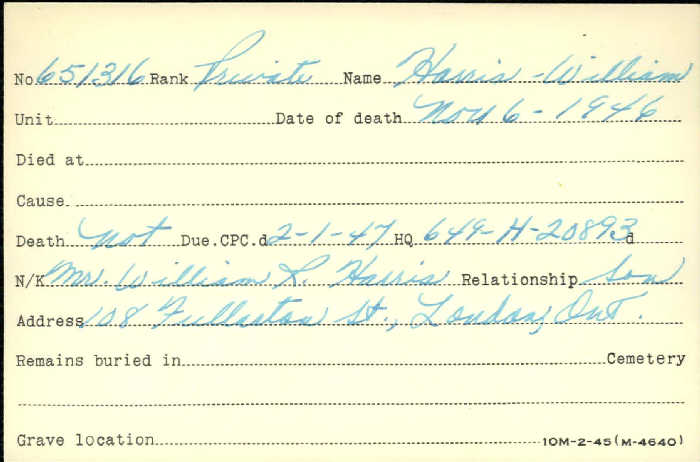 No. 651316 Rank Private Name Harris - William
Unit Date of death Nov 6 - 1946
Died at
Cause
Death not Due. CPC.d 2-1-47 HQ 649-H-20893 d
N/K Mr. William R. Harris Relationship Son
Address 108 Fullarton St., London, Ont.
Remains buried in Cemetery
Grave location 10M-2-45 (M-4640)